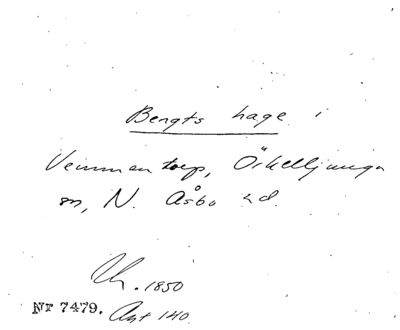 Bengts hage i
Vemmentorp, Örkelljunga
sn, N. Åsbo hd.
Uh. 1850
Nr 7479. Akt 140